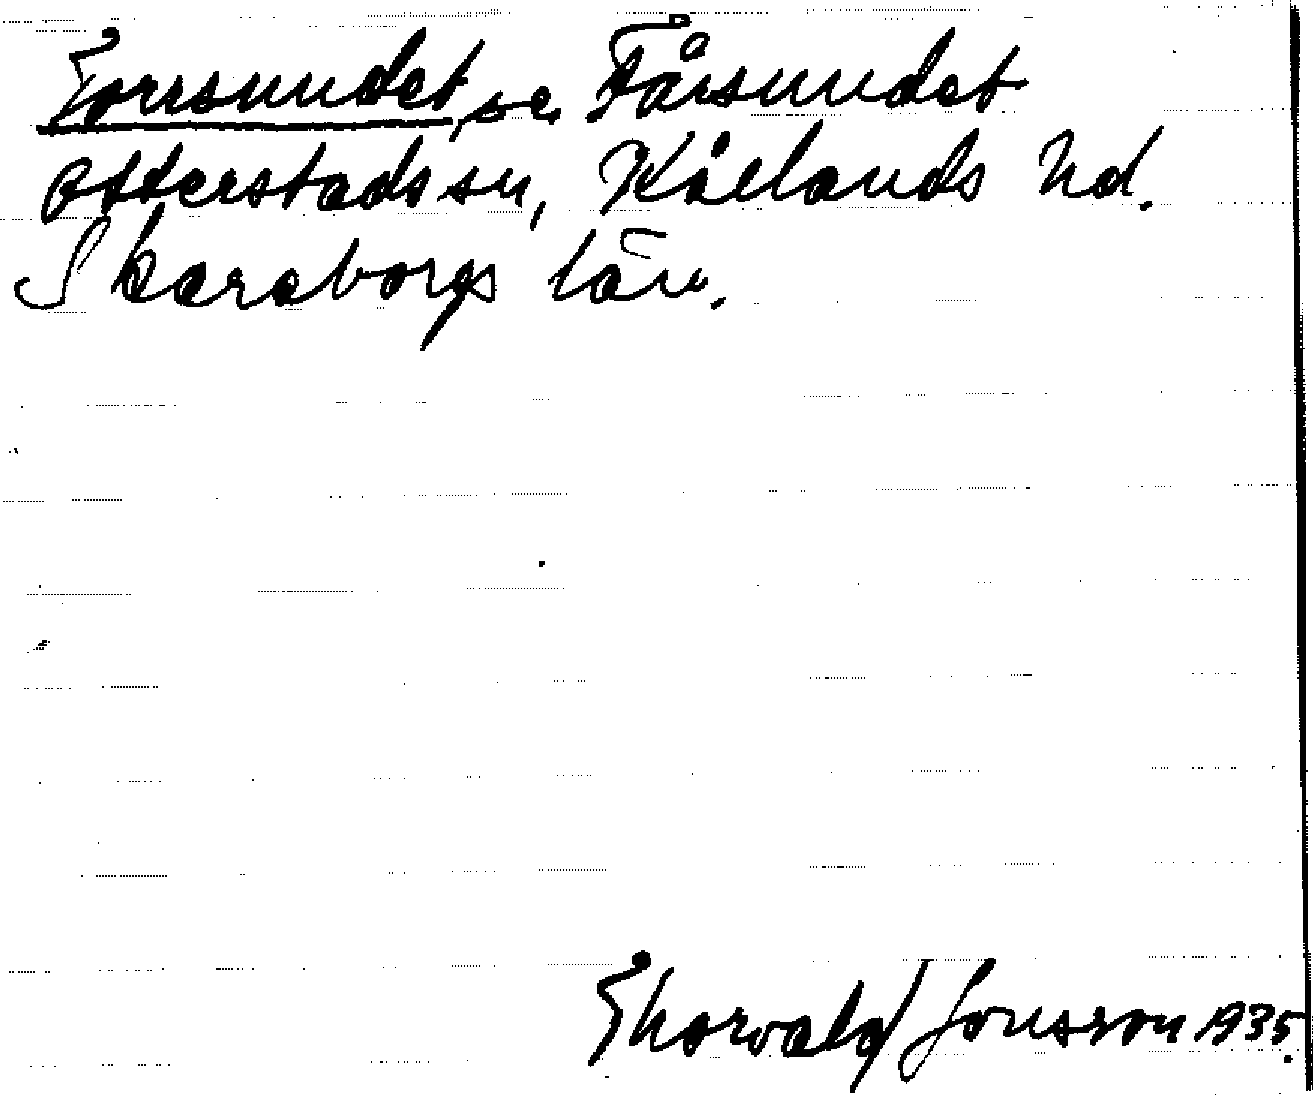 Torrsundet, se Fårsundet
Otterstads sn, Kållands hd.
Skaraborgs län.
Thorvald Jonsson 1935.